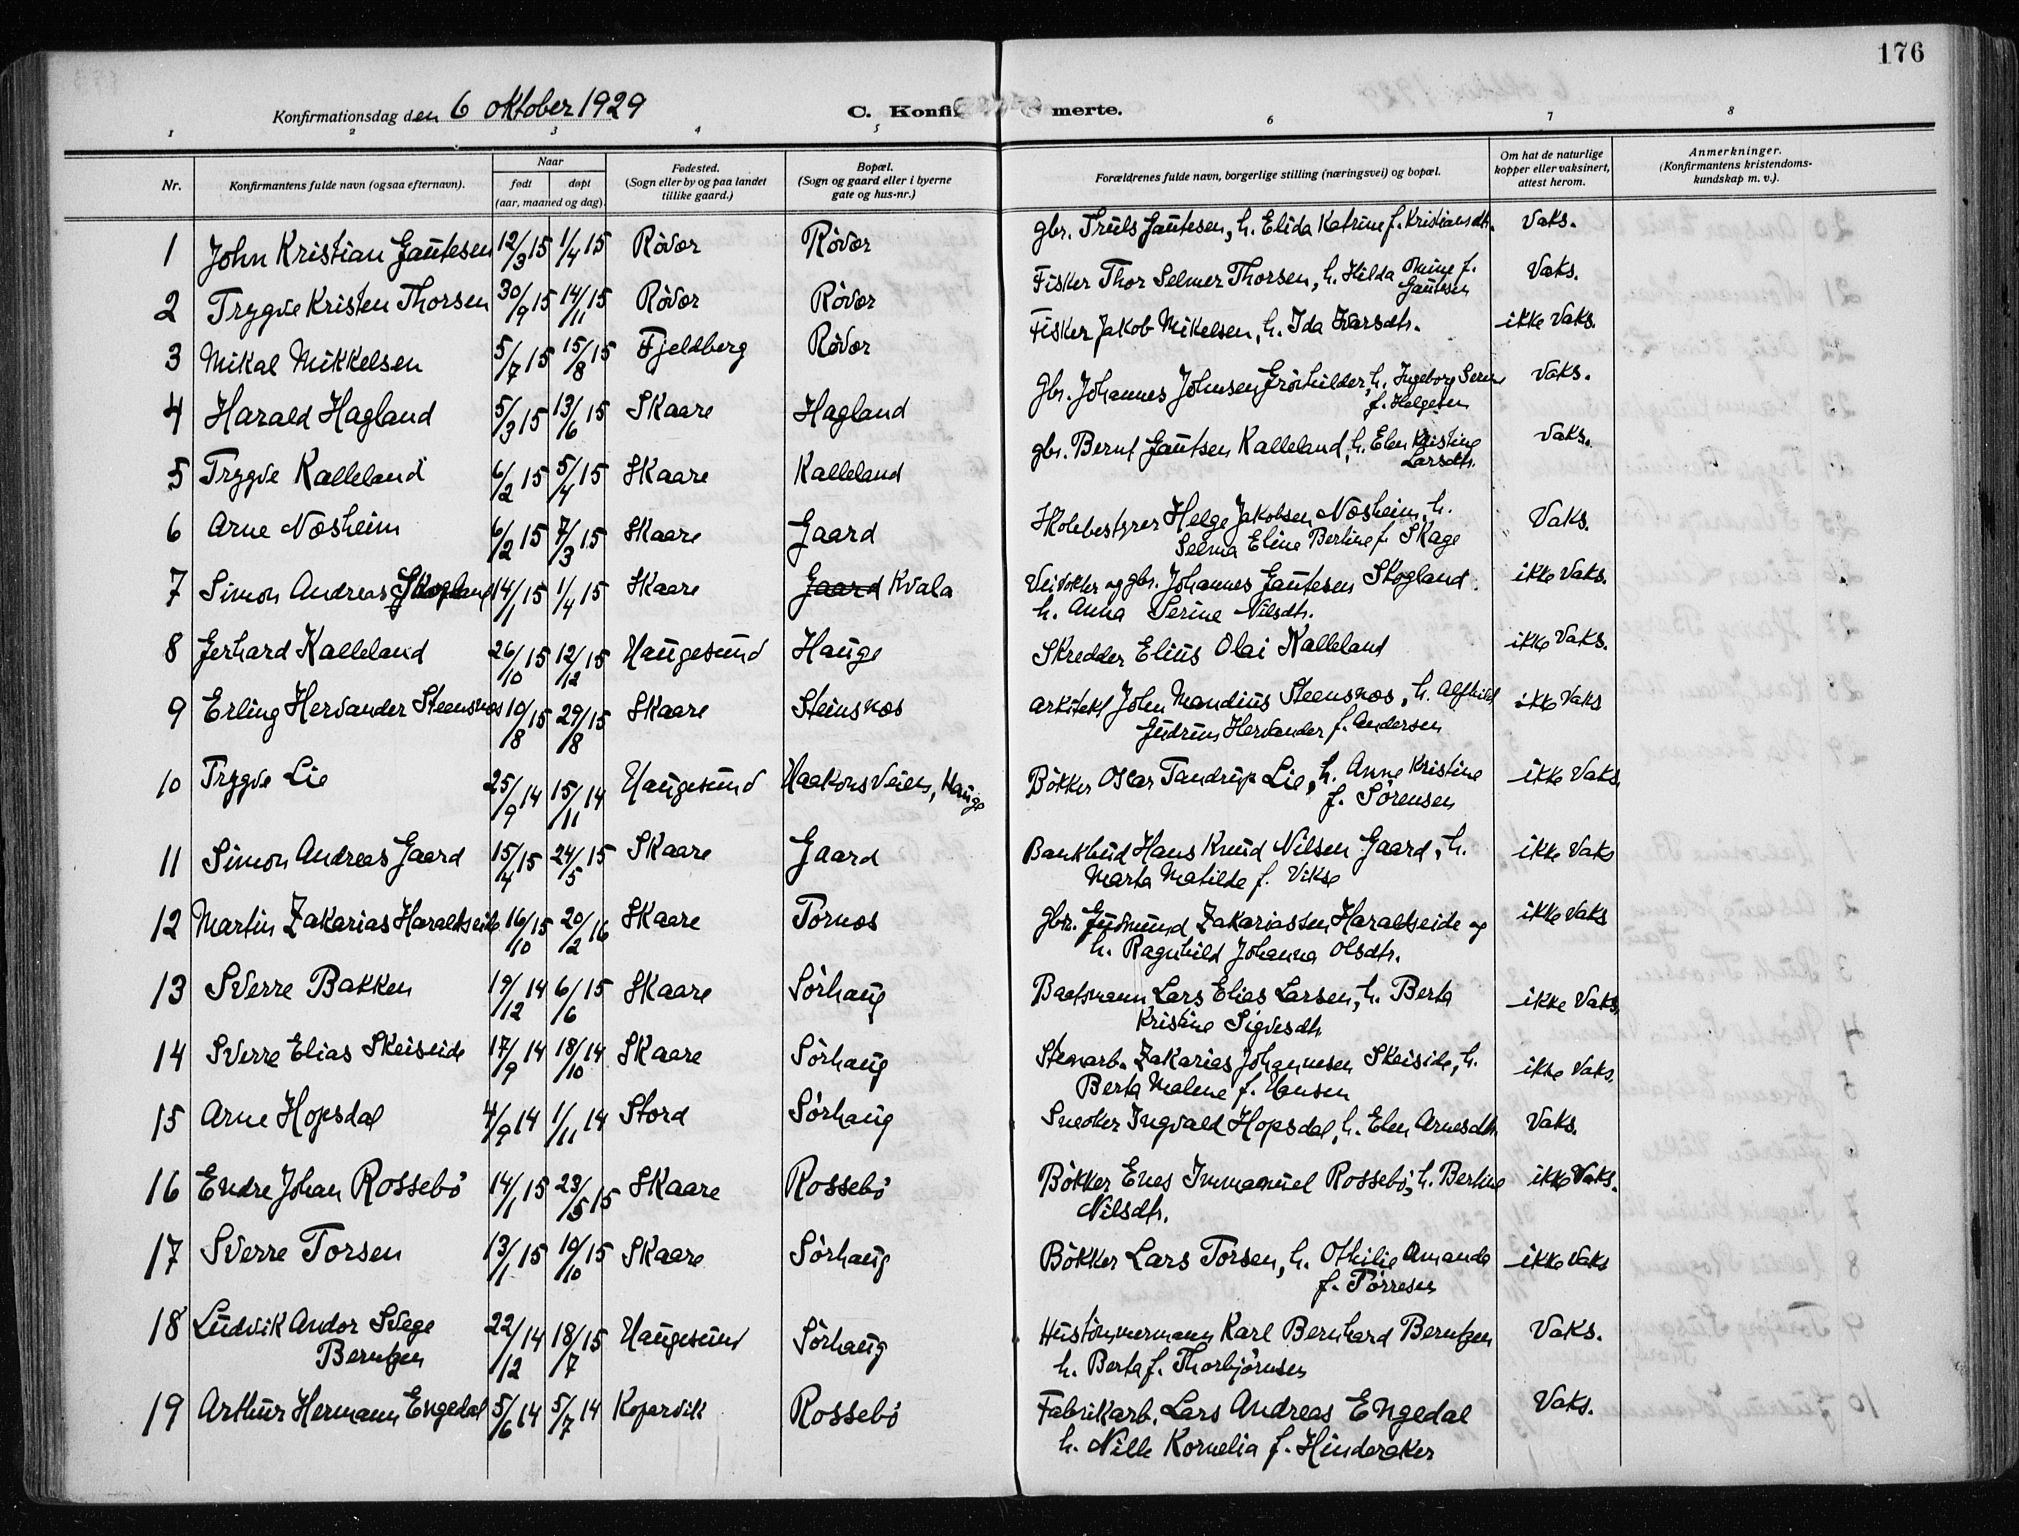 176
Konfirmationsdag den 6 oktober 1929
C. Konfi merte.
1 2 3 4 5 6 7 8
Nr.
Konfirmantens fulde navn (ogsaa efternavn).
Naar
født døpt
(aar, maaned og dag).
Fødested.
(Sogn eller by og paa landet
tillike gaard.)
Bopæl.
(Sogn og gaard eller i byerne
gate og hus-nr.)
Forældrenes fulde navn, borgerlige stilling (næringsvei) og bopæl.
Om hat de naturlige
kopper eller vaksinert,
attest herom.
Anmerkninger.
(Konfirmantens kristendoms-
kundskap m. v.).
1 John Kristian Gautesen 12/3 15 1/4 15 Røvær Røvær gbr. Truls Gautesen, h. Elida Katrine f. Kristiansdtr. Vaks.
2 Trygve Kristen Thorsen 30/9 15 14/11 15 Røvær Røvær Fisker Thor Selmer Thorsen, h. Hilda Omine f.
Gautesen Vaks.
3 Mikal Mikkelsen 5/7 15 15/8 15 Fjeldberg Røvær Fisker Jakob Mikelsen, h. Ida Ivarsdtr. ikke Vaks.
4 Harald Hagland 5/3 15 13/6 15 Skaare Hagland gbr. Johannes Johnsen h. Ingeborg Serine
f. Helgesen Vaks.
5 Trygve Kalleland 6/2 15 5/4 15 Skaare Kalleland gbr. Bernt Gautsen Kalleland, h. Elen Kristine
Larsdtr. Vaks.
6 Arne Næsheim 6/2 15 7/3 15 Skaare Gaard Skolebestyrer Helge Jakobsen Næsheim, h.
Selma Eline Bertine f. Skage Vaks.
7 Simon Andreas Skogland 14/1 15 1/4 15 Skaare Gaard Kvala Veivokter og gbr. Johannes Gautesen Skogland.
h. Anna Serine Nilsdtr. ikke Vaks.
8 Gerhard Kalleland 26/10 15 12/12 15 Haugesund Hauge Skredder Elius Olai Kalleland ikke Vaks.
9 Erling Hervander Steensnæs 10/8 15 29/8 15 Skaare Steinsnæs Arkitekt John Mandius Steensnæs, h. Alfhild
Gudrun Hervander f. Andersen ikke Vaks
10 Trygve Lie 25/9 14 15/11 14 Haugesund Haakonsveien, Hauge Bøkker Oscar Tandrup Lie, h. Anne Kristine
f. Sørensen ikke Vaks
11 Simon Andreas Gaard 15/4 15 24/5 15 Skaare Gaard Bankbud Hans Knud Nilsen Gaard, h.
Marta Matilde f. Vikse ikke Vaks
12 Martin Zakarias Haraldseide 16/10 15 20/2 16 Skaare Tornes gbr. Gudmund Zakariassen Haraldseide og
h. Ragnhild Johanna Olsdtr. ikke Vaks
13 Sverre Bakken 19/12 14 6/6 15 Skaare Sørhaug Baatsmann Lars Elias Larsen, h. Berta
Kristine Sigvesdtr ikke Vaks.
14 Sverre Elias Skeiseide 17/9 14 18/10 14 Skaare Sørhaug Stenarb. Zakarias Johannesen Skeiside, h.
Berta Malene f. Hansen ikke Vaks.
15 Arne Hopsdal 4/9 14 1/11 14 Stord Sørhaug Snedker Ingvald Hopsdal, h. Elen Arnesdtr Vaks.
16 Endre Johan Rossebø 14/1 15 23/5 15 Skaare Rossebø Bøkker Enes Immanuel Rossebø, h. Bertine
Nilsdtr. ikke Vaks.
17 Sverre Torsen 13/1 15 10/10 15 Skaare Sørhaug Bøkker Lars Torsen, h. Othilie Amanda
f. Tørresen ikke Vaks
18 Ludvik Andor Svege
Berntzen 22/12 14 18/7 15 Haugesund Sørhaug Hustømmermann Karl Bernhard Berntzen
h. Berta f. Thorbjørnsen Vaks.
19 Arthur Hermann Engedal 5/6 14 5/7 14 Kopervik Rossebø Fabrikarb. Lars Andreas Engedal
h. Nille Kornelia f. Hinderaker Vaks.